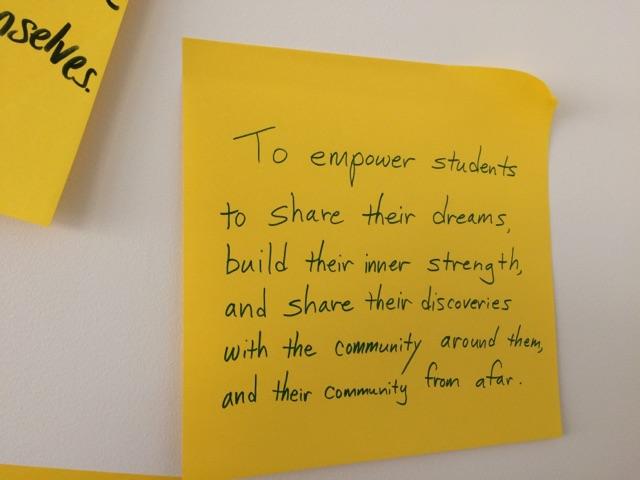 nselves.
To empower students
to share their dreams,
build their inner strength,
and share their discoveries
with the community around them,
and their community from afar.